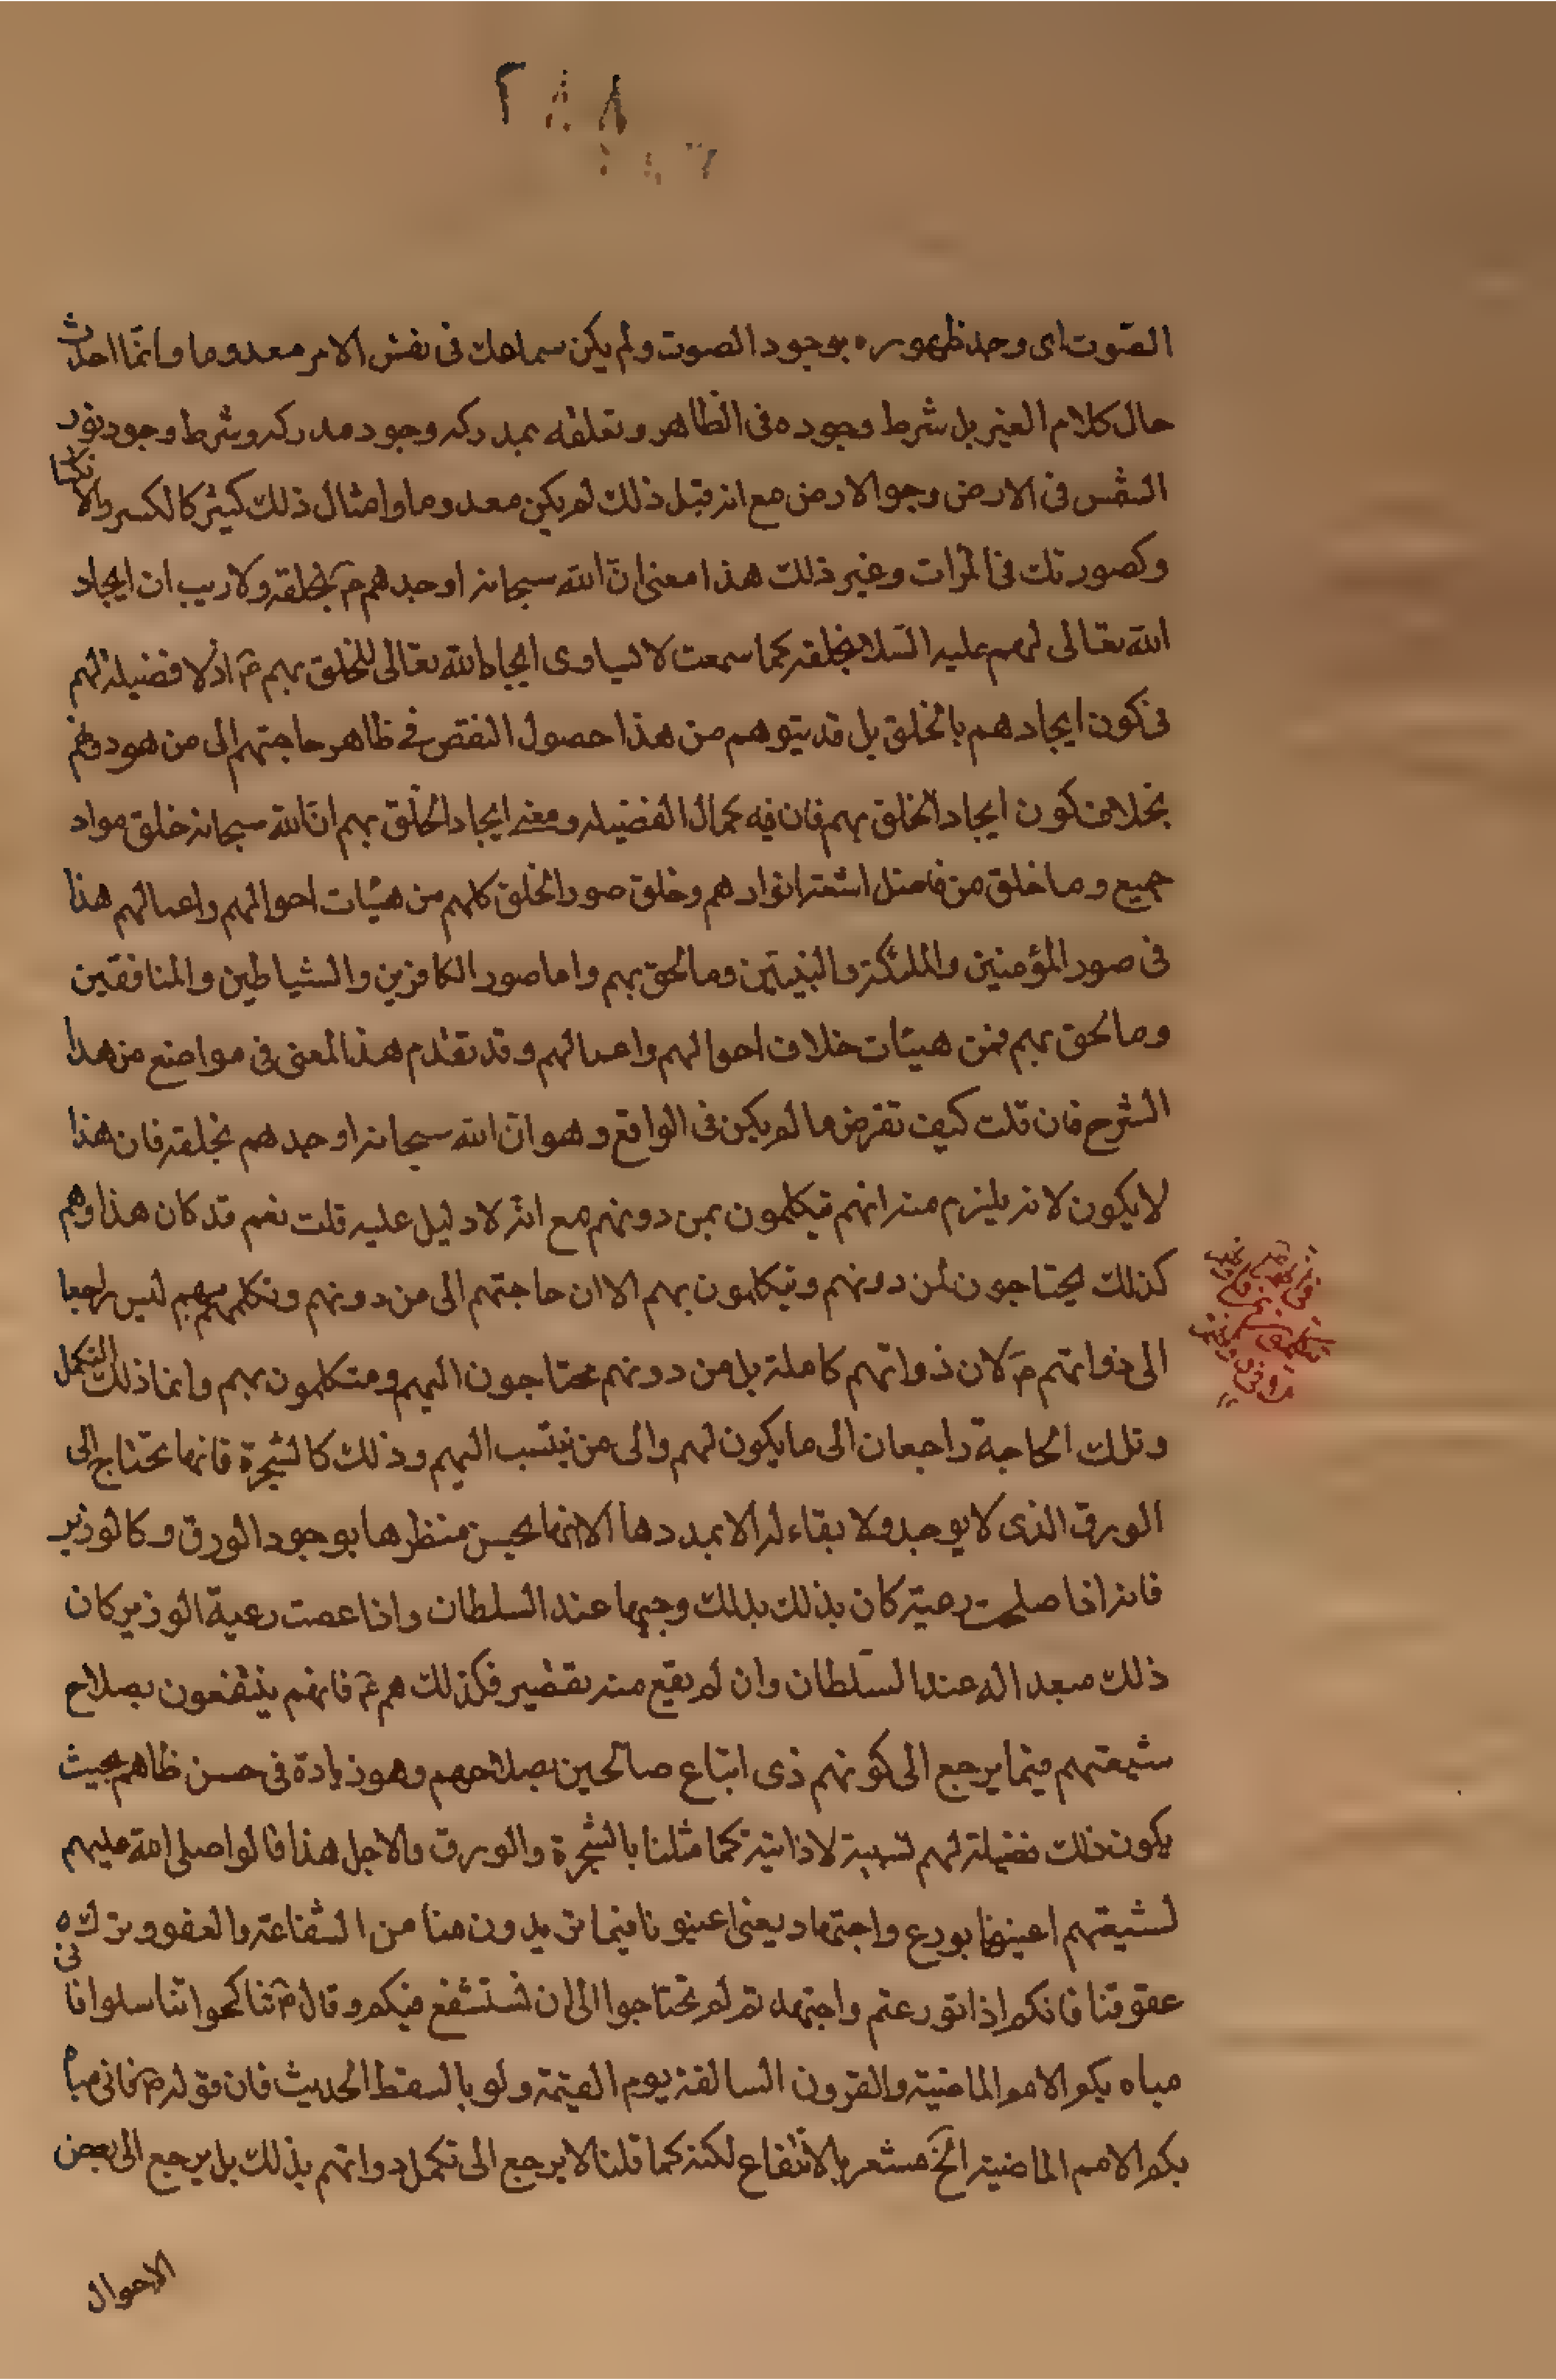 الصّوت اى وجد ظهوره بوجود الصوت ولم يكن سماعك فى نفس الامر معدوما وانمّا احدث
حال كلام الغير بل شرط وجوده فى الظاهر وتعلقه بمدركه وجود مدركه وشرط وجود نور
الشمس فى الارض وجود الارض مع انه قبل ذلك لم يكن معدوما وامثال ذلك كثير كالكسر والانكسار
وكصورتك فى المرات وغير ذلك هذا معنى انّ الله سبحانه اوجدهم بخلقه ولا ريب ان ايجاد
الله تعالى لهم عليه السّلام بخلقه كما سمعت لا يساوى ايجاد الله تعالى للخلق بهم ع اذ لا فضيلة لهم
فى كون ايجادهم بالخلق بل قد يتوهم من هذا حصول النقص فى ظاهر حاجتهم الى من هو دونهم
بخلاف كون ايجاد الخلق بهم فان فيه كمال الفضيلة ومعنى ايجاد الخلق بهم انّ الله سبحانه خلق مواد
جميع وما خلق من فاضل اشعة انوارهم وخلق صور الخلق كلهم من هيئات احوالهم واعمالهم هذا
فى صور المؤمنين والملئكة والنبيّين وما لحق بهم واما صور الكافرين والشياطين والمنافقين
وما لحق بهم فمن هيئات خلاف احوالهم واعمالهم وقد تقدم هذا المعنى فى مواضع من هذا
الشرح فان قلت كيف تفرض ما لم يكن فى الواقع وهو انّ الله سبحانه اوجدهم بخلقه فان هذا
لا يكون لانه يلزم منه انهم يتكلمون بمن دونهم مع انه لا دليل عليه قلت نعم قد كان هذا وهم
كذلك يحتاجون لمن دونهم ويتكلمون بهم الا ان حاجتهم الى من دونهم وتكلمهم بهم ليس راجعا
الى ذواتهم لان ذواتهم كاملة بل من دونهم محتاجون اليهم ومتكلمون بهم وانما ذلك التكمل
وتلك الحاجة راجعان الى ما يكون لهم والى من ينتسب اليهم وذلك كالشجرة فانها تحتاج الى
الورق الذى لا يوجد ولا بقاء له الا بمددها الا انها يحسن منظرها بوجود الورق وكالوزير
فانه اذا صلحت رعيته كان بذلك وجيها عند السلطان واذا عصت رعية الوزير كان
ذلك مبعدا له عند السّلطان وان لم يقع منه تقصير فكذلك هم ع فانهم ينتفعون بصلاح
شيعتهم فيما يرجع الى كونهم ذى اتباع صالحين بصلاحهم وهو زيادة فى حسن ظاهرهم بحيث
يكون ذلك فضيلة لهم نسبية لا ذاتية كما مثلنا بالشجرة والورق ولاجل هذا قالوا صلى الله عليهم
لشيعتهم اعينونا بورع واجتهاد يعنى اعينونا فيما تريدون منا من الشفاعة والعفو وترك
عقوقنا فانكم اذا تورعتم واجتهدتم لم تحتاجوا الى ان نستشفع فيكم وقال تناكحوا تناسلوا فانى
مباه بكم الامم الماضية والقرون السالفة يوم القيمة ولو بالسقط الحديث فان قوله فانى مباه
بكم الامم الماضية الخ مشعر بالانتفاع لكنه كما قلنا لا يرجع الى تكمل ذواتهم بذلك بل يرجع الى بعض
الاحوال